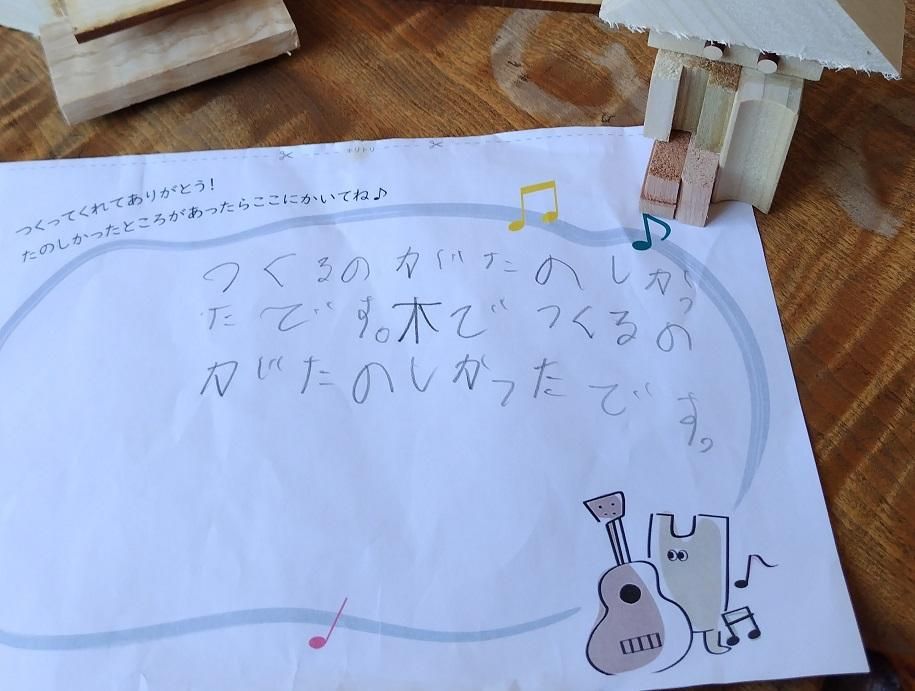 キリトリ
つくってくれてありがとう!
たのしかったところがあったらここにかいてね♪
つくるのがたのしかっ
たです。木でつくるの
がたのしかったです。